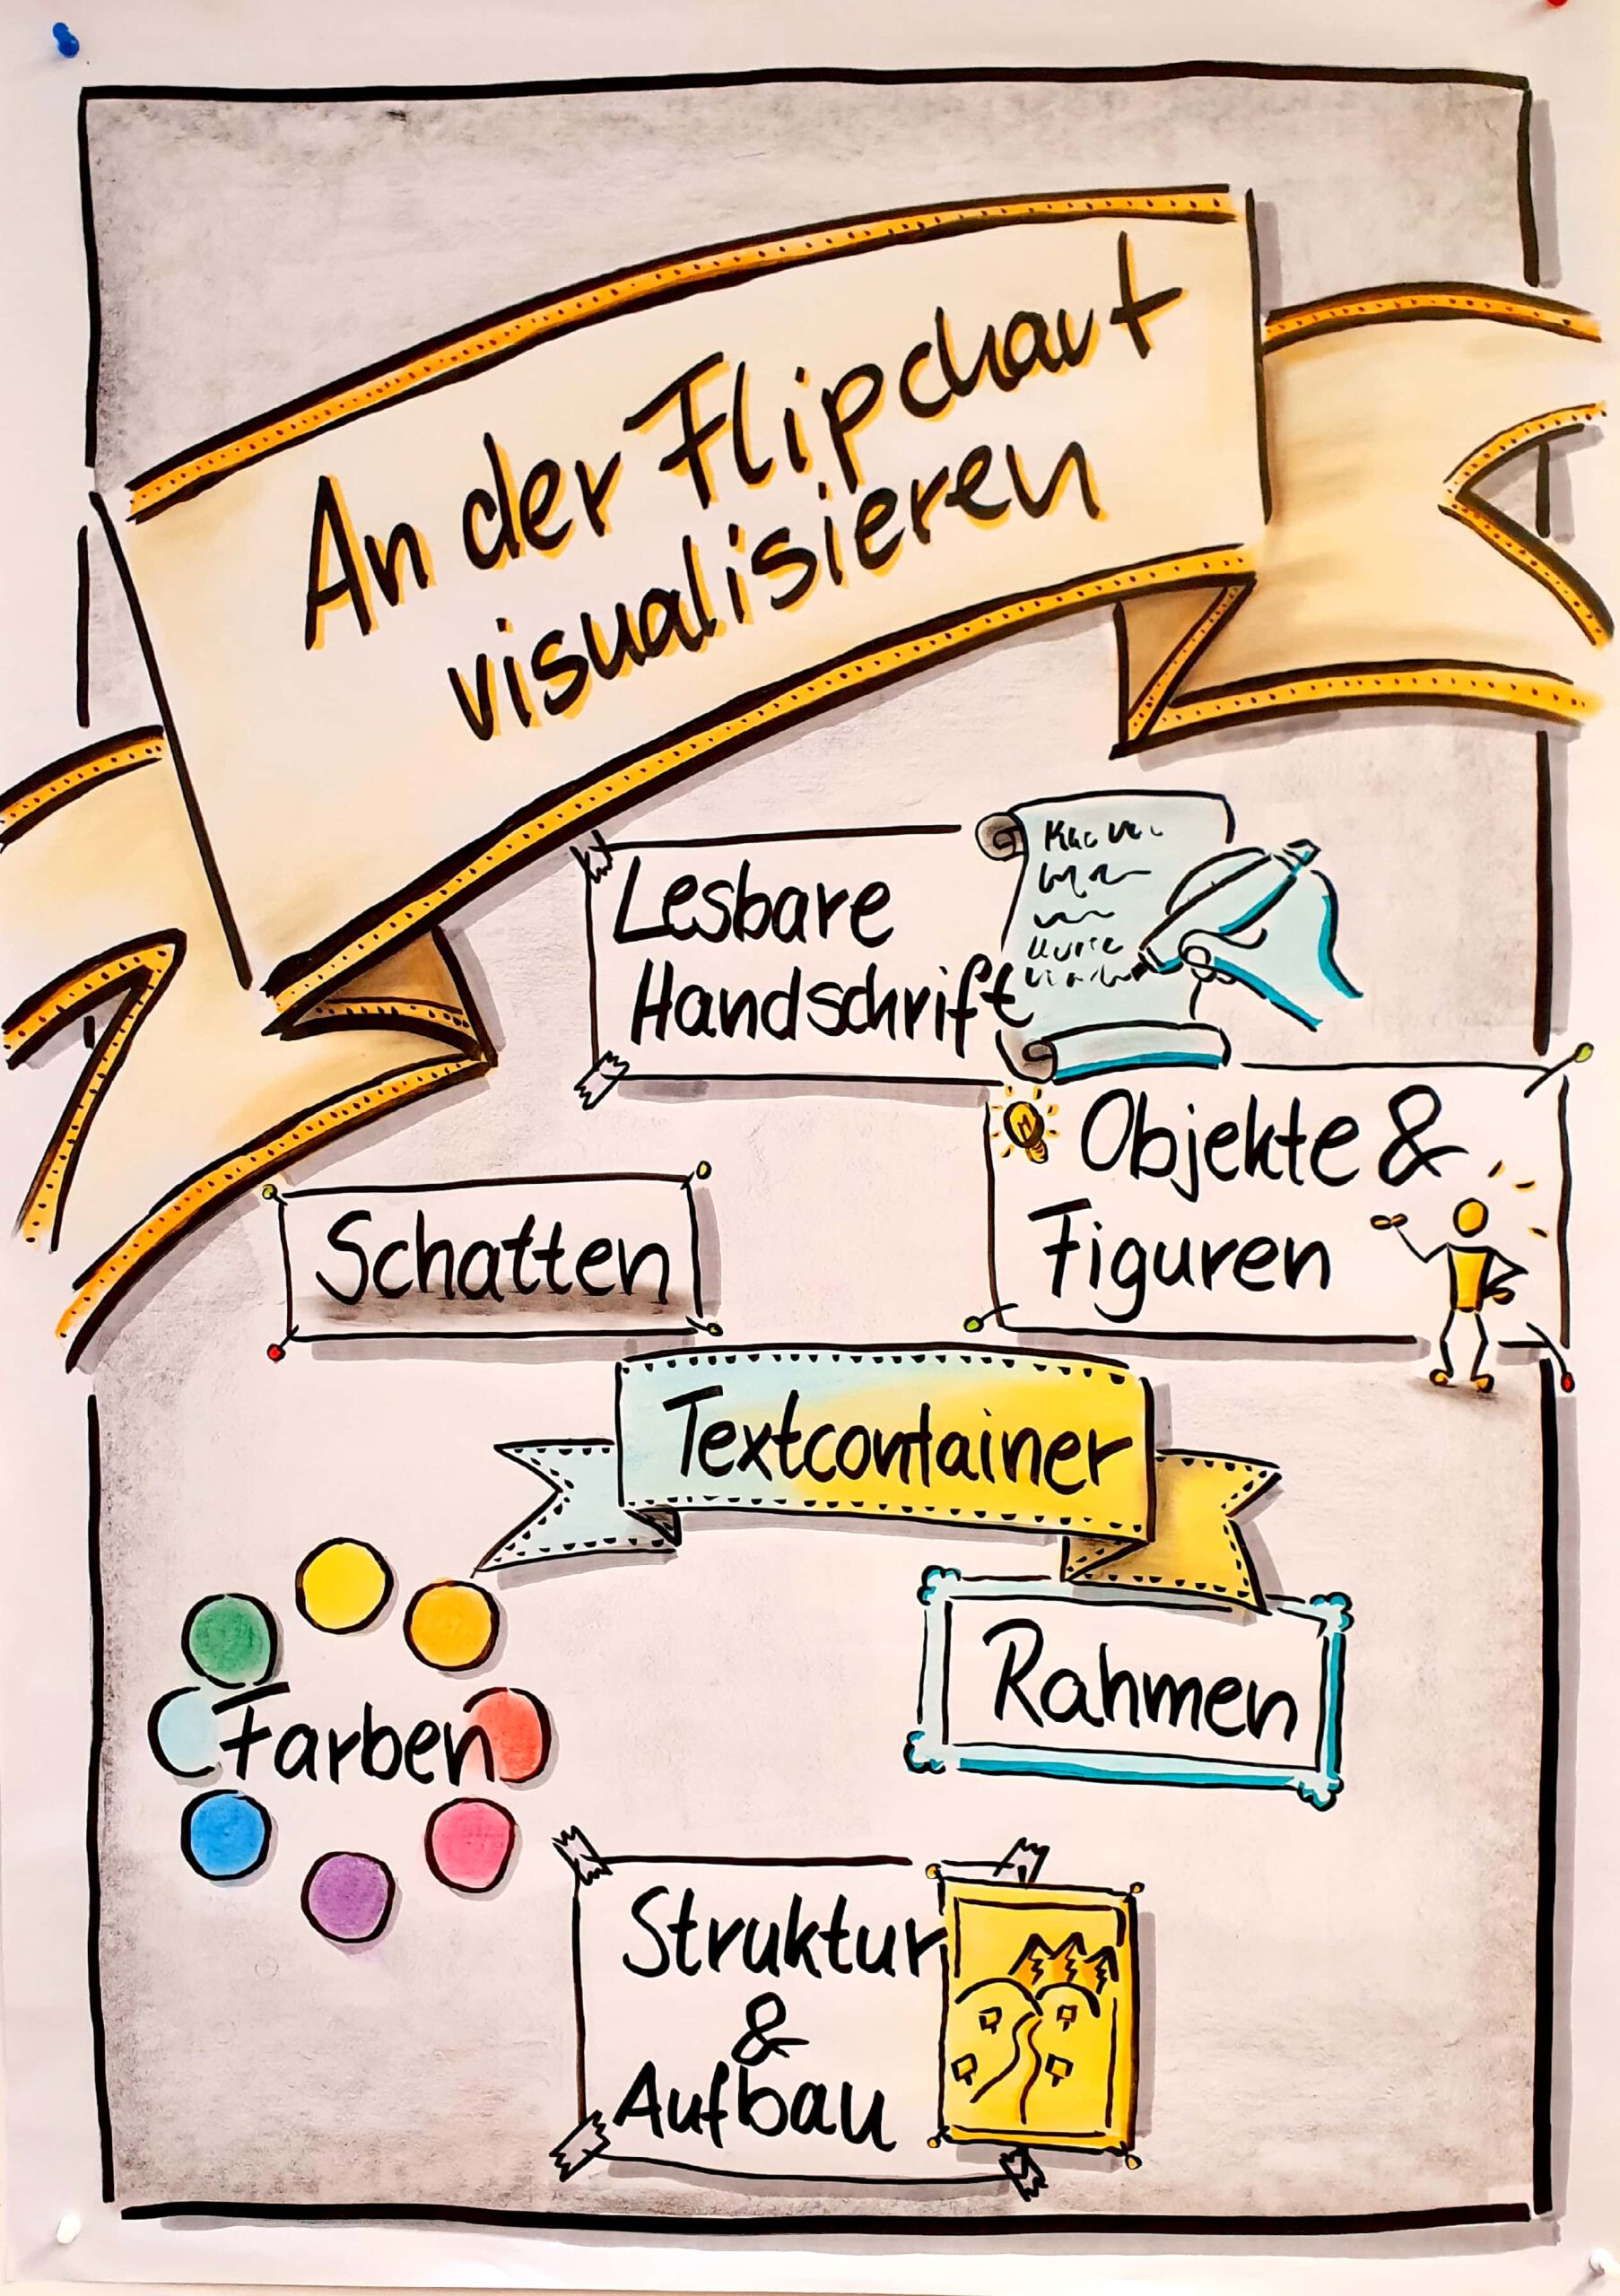 An der Flipchart
visualisieren
Lesbare
Handschrift
Objekte &
Figuren
Schatten
Textcontainer
Farben
Rahmen
Struktur
&
Aufbau